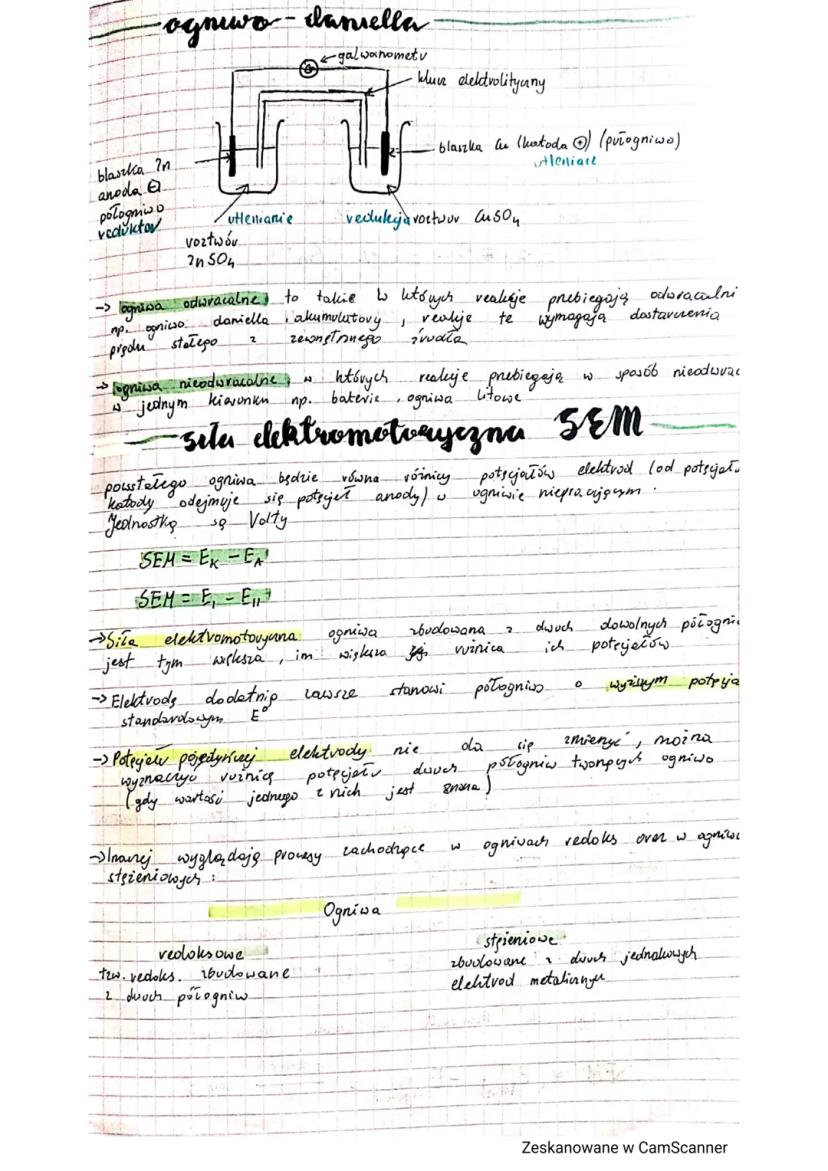 ogniwo - daniella
galwanometr
klucz elektrolityczny
blaszka Cu (katoda ⊕) (półogniwo)
utleniacz
blaszka Zn
anoda ⊖
półogniwo
reduktor
utlenianie
redukcja roztwór CuSO4
roztwór
ZnSO4
→ ogniwa odwracalne, to takie w których reakcje przebiegają odwracalni
np. ogniwo daniella, akumulatory, reakcje te wymagają dostarczenia
prądu stałego z zewnętrznego źródła
→ ogniwa nieodwracalne, w których reakcje przebiegają w sposób nieodwrac
w jednym kierunku np. baterie, ogniwa litowe
siła elektromotoryczna SEM
powstałego ogniwa będzie równa różnicy potęcjałów elektrod (od potęcjału
katody odejmuje się potęcjeł anody) w ogniwie niepracującym.
Jednostką są Volty
SEM = EK - EA
SEM = EI - EII
→ Siła elektromotoryczna ogniwa zbudowana z dwóch dowolnych półogni
jest tym większa, im większa różnica ich potęcjałów
→ Elektrodę dodatnią zawsze stanowi półogniwo o wyższym potęcja
standardowym E°
→ Potęcjału pojedynczej elektrody nie da się zmierzyć, można
wyznaczyć różnicę potęcjału dwóch półogniw tworzących ogniwo
(gdy wartość jednego z nich jest znana)
→ Inaczej wyglądają procesy zachodzące w ogniwach redoks oraz w ogniwa
stężeniowych:
Ogniwa
redoksowe
tzw. redoks. zbudowane
z dwóch półogniw
stężeniowe
zbudowane z dwóch jednakowych
elektrod metalicznych
Zeskanowane w CamScanner